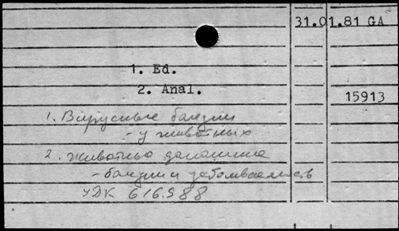 31.01.81 GA
1. Ed.
2. Anal.
15913
1. Вирусные болезни
- у животных
2. животные домашние
- болезни и заболеваемость
УДК 616.988